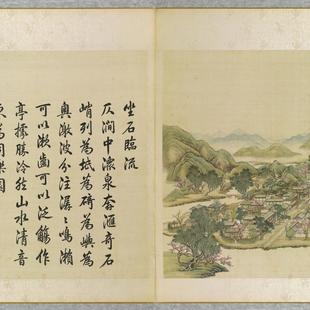 坐石臨流
仄澗中瀠泉奔滙奇石
峭列為坻為碕為嶼為
奥激波分注潺〻鳴瀨
可以漱齒可以泛觴作
亭據勝泠然山水清音
東為同樂園